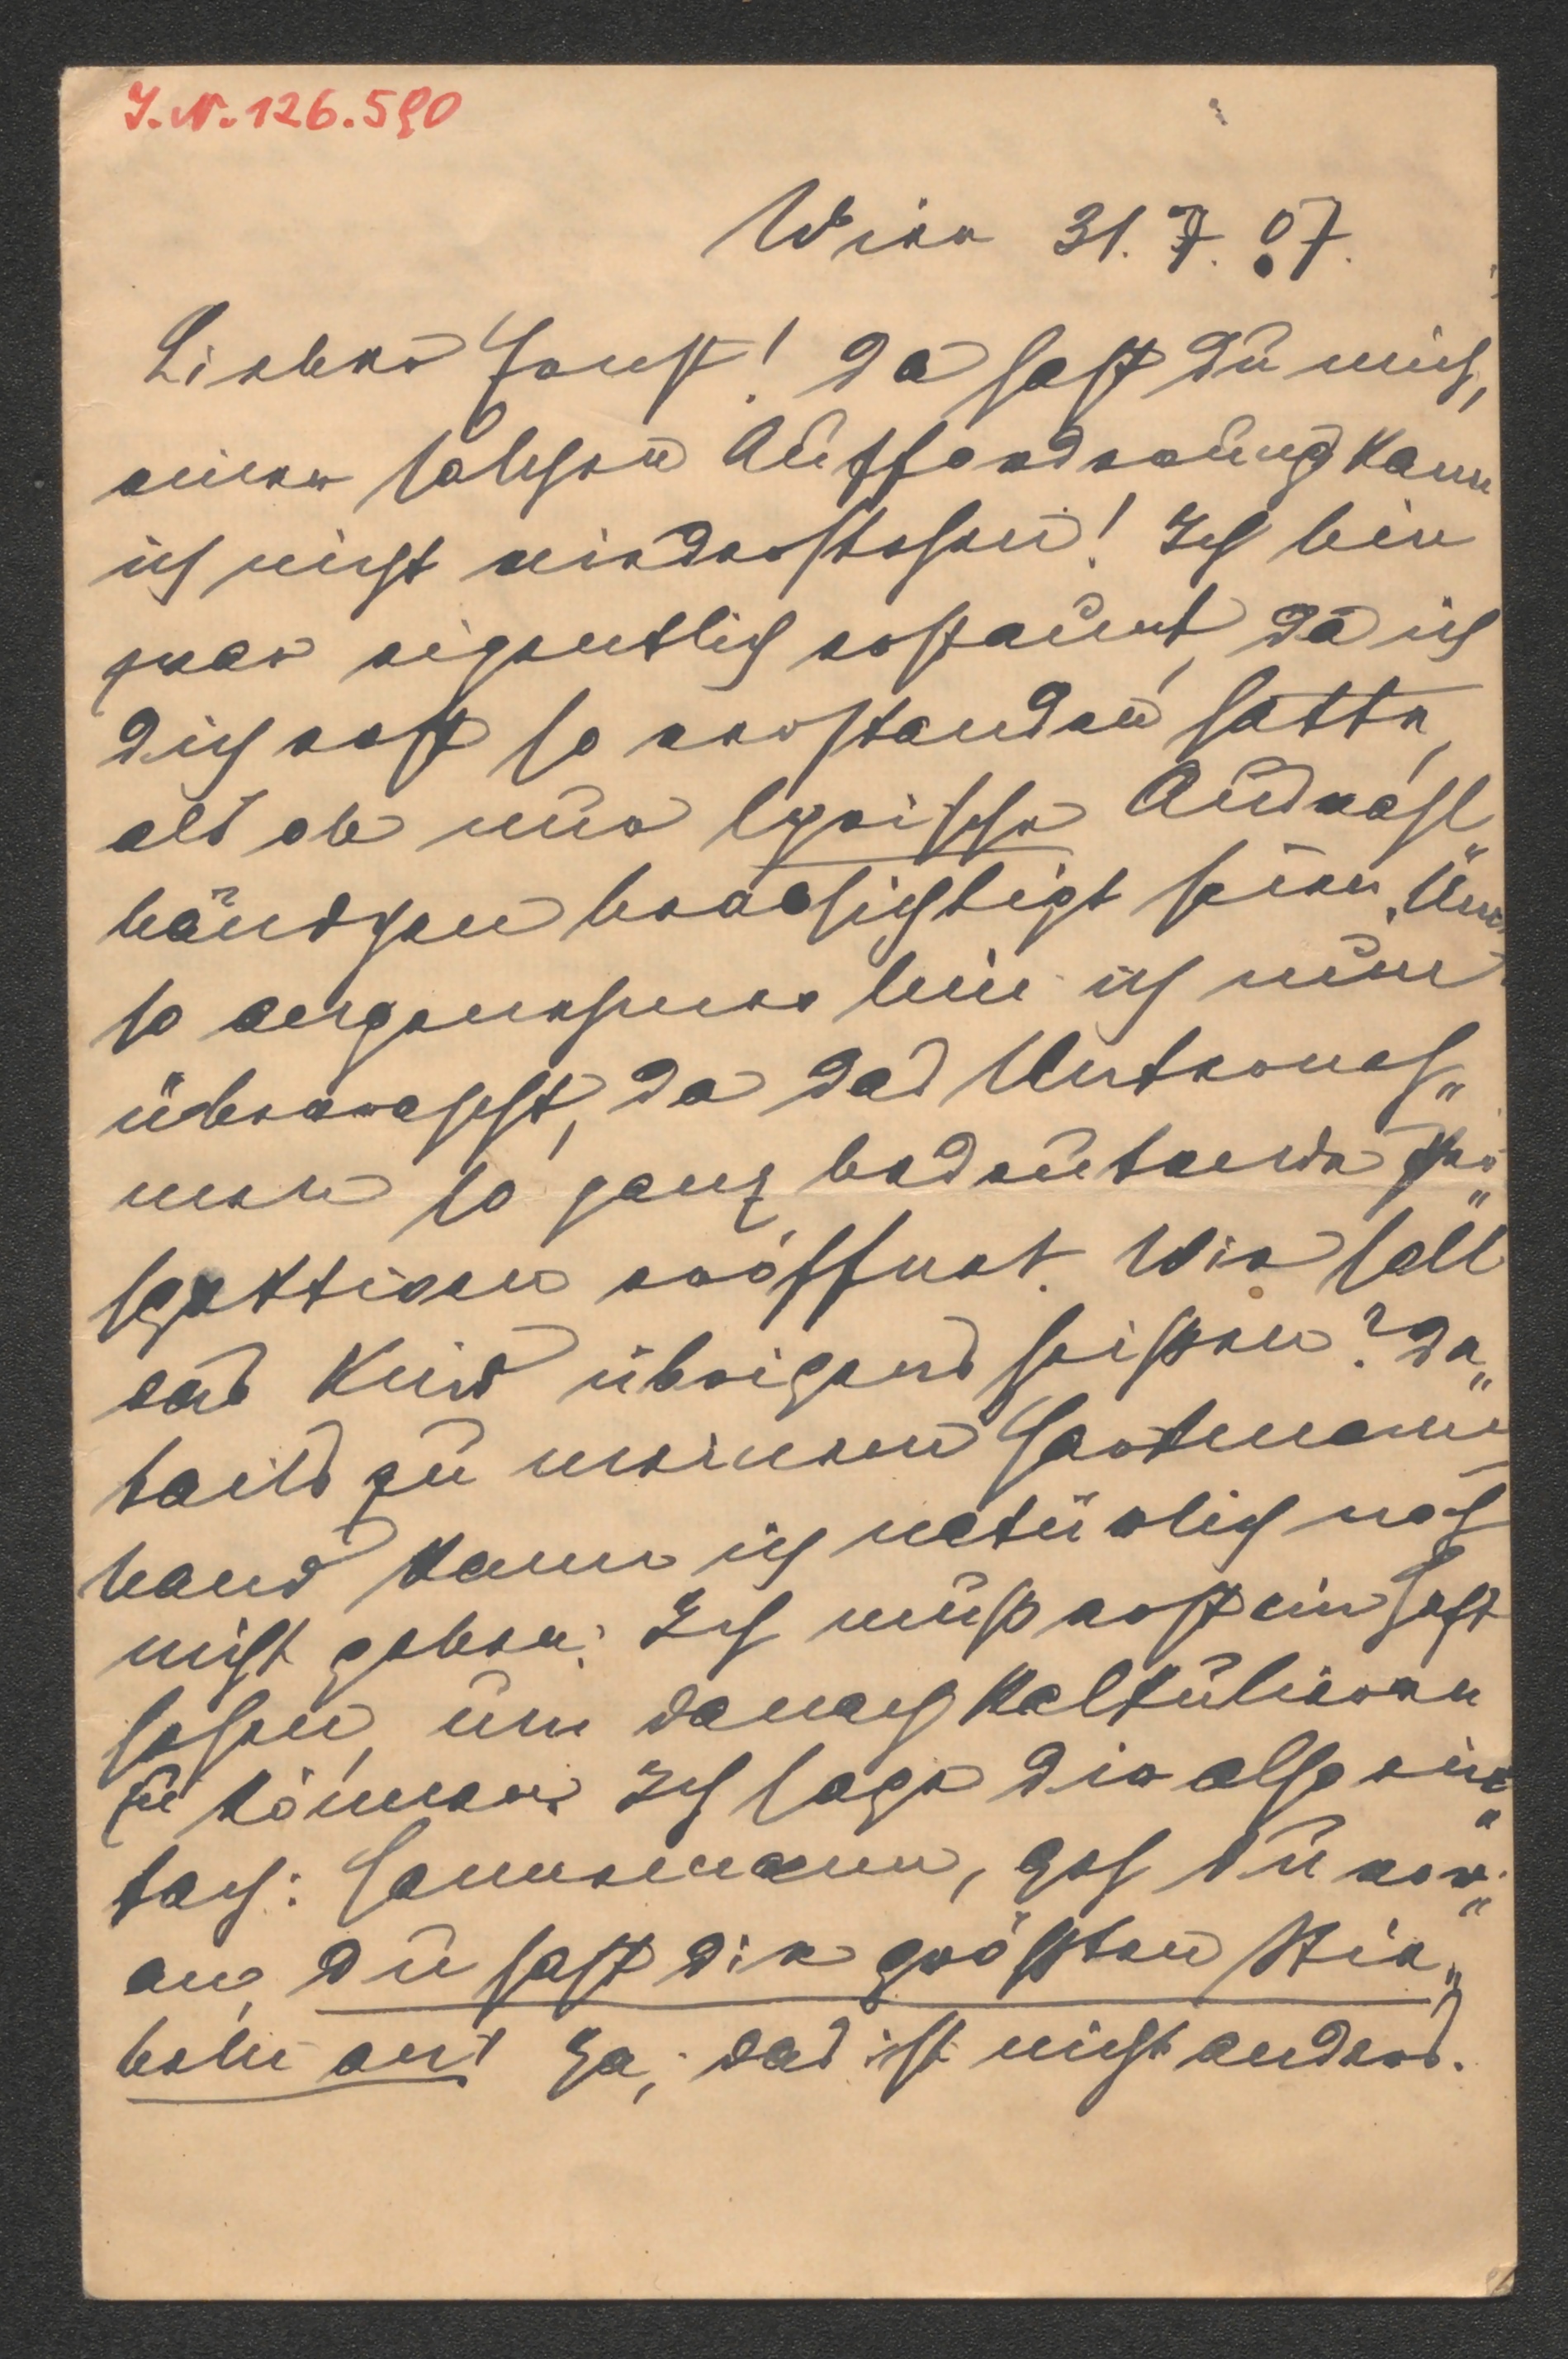 J.N. 126.590
Wien 31. 7. 07.
Lieber Horst! Da hast Du mich,
einer solchen Aufforderung kann
ich nicht widerstehen! Ich bin
zwar eigentlich erstaunt, da ich
Dich erst so verstanden hatte,
als ob nur lyrische Auswahl„
bändchen beabsichtigt seien. Um
so angenehmer bin ich nun
überrascht, da das Unterneh„
men so ganz bedeutende
eröffnet. Wie soll
das Kind übrigens heißen? De„
tails zu meinem Hartmann
band kann ich natürlich noch
nicht geben. Ich muß erst ein Heft
sehen, um danach kalkulieren
zu können. Ich sage Dir also ein„
fach: Hannemann, geh Du vor„
an, Du hast die größten Stie„
beln an! Ja, das ist nicht anders.